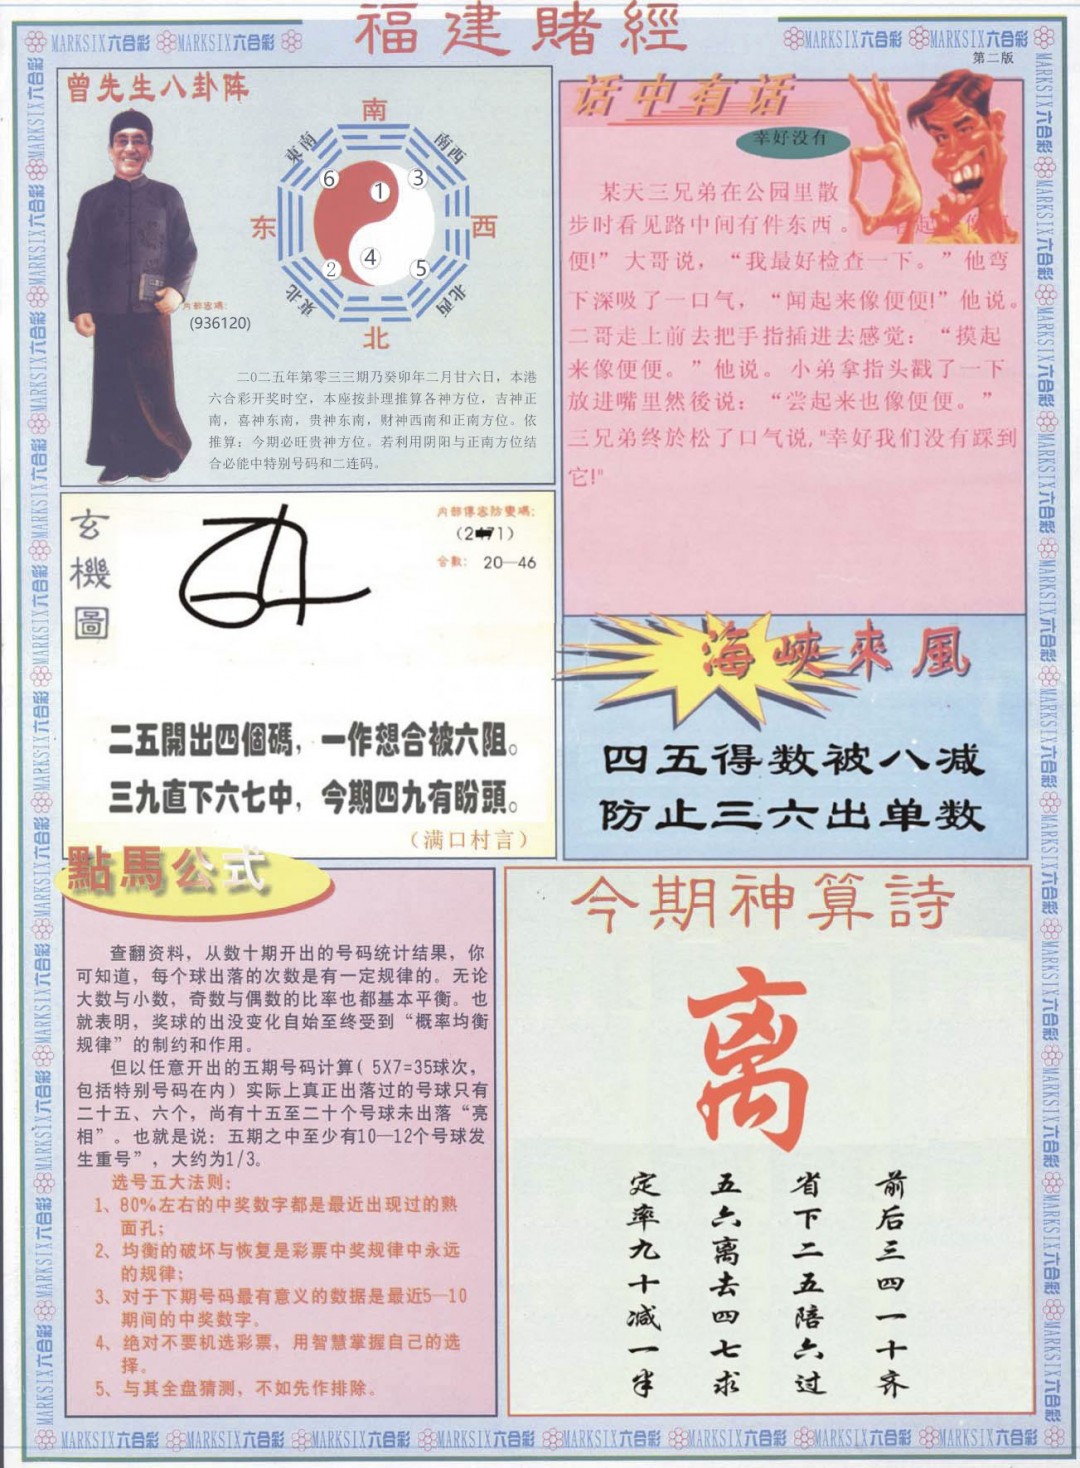 福建賭經
MARKSIX六合彩 MARKSIX六合彩
MARKSIX六合彩 MARKSIX六合彩
第二版
曾先生八卦阵
南
東南
南西
6
1
3
东
西
2
4
5
東北
北西
北
内部密碼:
(936120)
二0二五年第零三三期乃癸卯年二月廿六日，本港
六合彩开奖时空，本座按卦理推算各神方位，吉神正
南，喜神东南，贵神东南，财神西南和正南方位。依
推算：今期必旺贵神方位。若利用阴阳与正南方位结
合必能中特别号码和二连码。
话中有话
幸好没有
某天三兄弟在公园里散
步时看见路中间有件东西。
便!”大哥说，“我最好检查一下。”他弯
下深吸了一口气，“闻起来像便便!”他说。
二哥走上前去把手指插进去感觉：“摸起
来像便便。”他说。小弟拿指头戳了一下
放进嘴里然後说：“尝起来也像便便。”
三兄弟终於松了口气说,"幸好我们没有踩到
它!"
玄機圖
内部傳密防變碼:
合數: 20—46
二五開出四個碼，一作想合被六阻。
三九直下六七中，今期四九有盼頭。
（满口村言）
海峽來風
四五得数被八减
防止三六出单数
點馬公式
查翻资料，从数十期开出的号码统计结果，你
可知道，每个球出落的次数是有一定规律的。无论
大数与小数，奇数与偶数的比率也都基本平衡。也
就表明，奖球的出没变化自始至终受到“概率均衡
规律”的制约和作用。
但以任意开出的五期号码计算( 5X7=35球次，
包括特别号码在内）实际上真正出落过的号球只有
二十五、六个，尚有十五至二十个号球未出落“亮
相”。也就是说：五期之中至少有10—12个号球发
生重号”，大约为1/3。
选号五大法则:
1、80%左右的中奖数字都是最近出现过的熟
面孔;
2、均衡的破坏与恢复是彩票中奖规律中永远
的规律;
3、对于下期号码最有意义的数据是最近5—10
期间的中奖数字。
4、绝对不要机选彩票，用智慧掌握自己的选
择。
5、与其全盘猜测，不如先作排除。
今期神算詩
离
前后三四一十齐
省下二五陪六过
五六离去四七求
定率九十减一半
MARKSIX六合彩 MARKSIX六合彩 MARKSIX六合彩 MARKSIX六合彩 MARKSIX六合彩 MARKSIX六合彩 MARKSIX六合彩 MARKSIX六合彩